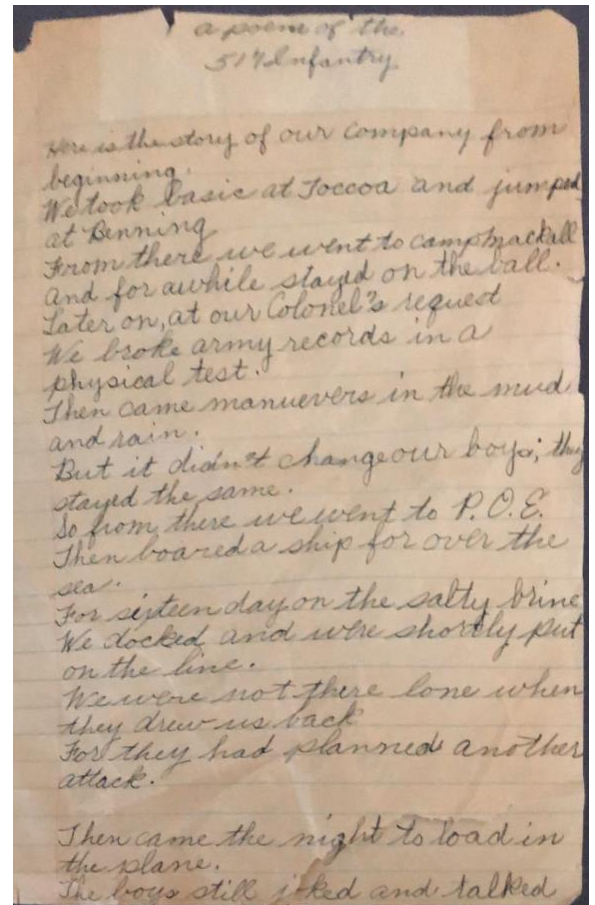 a poem of the
517 Infantry
Here is the story of our company from
beginning.
We took basic at Toccoa and jumped
at Benning
From there we went to camp Mackall
and for awhile stayed on the ball.
Later on, at our Colonel's request
We broke army records in a
physical test.
Then came manuevers in the mud
and rain.
But it didn't change our boys; they
stayed the same.
So from there we went to P.O.E.
Then boared a ship for over the
sea.
For sixteen day on the salty brine
We docked and were shortly put
on the line.
We were not there lone when
they drew us back
For they had planned another
attack.
Then came the night to load in
the plane.
The boys still joked and talked